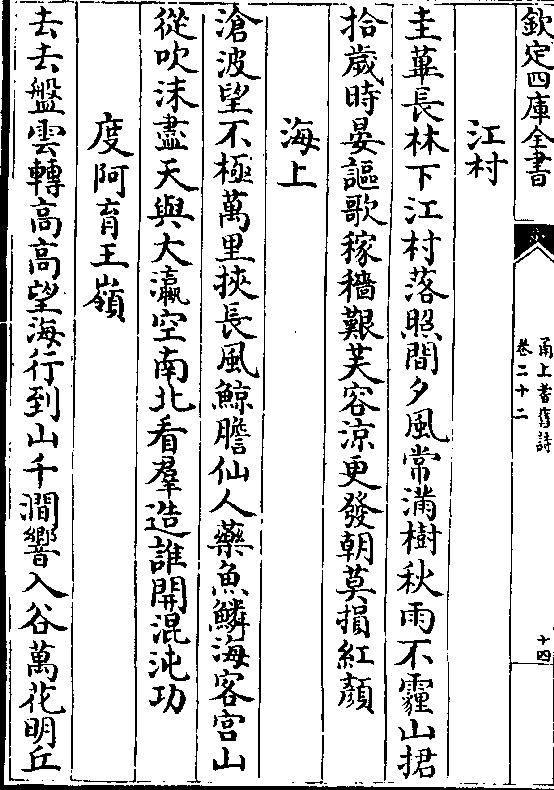 欽定四庫全書
甬上耆舊詩
卷二十二
十四
江村
圭蓽長林下江村落照間夕風常滿樹秋雨不霾山捃
拾歲時晏謳歌稼穡艱芙容涼更發朝莫損紅顏
海上
滄波望不極萬里挾長風鯨膽仙人藥魚鱗海客宫山
從吹沫盡天與大瀛空南北看羣造誰開混沌功
度阿育王嶺
去去盤雲轉高高望海行到山千澗響入谷萬花明丘